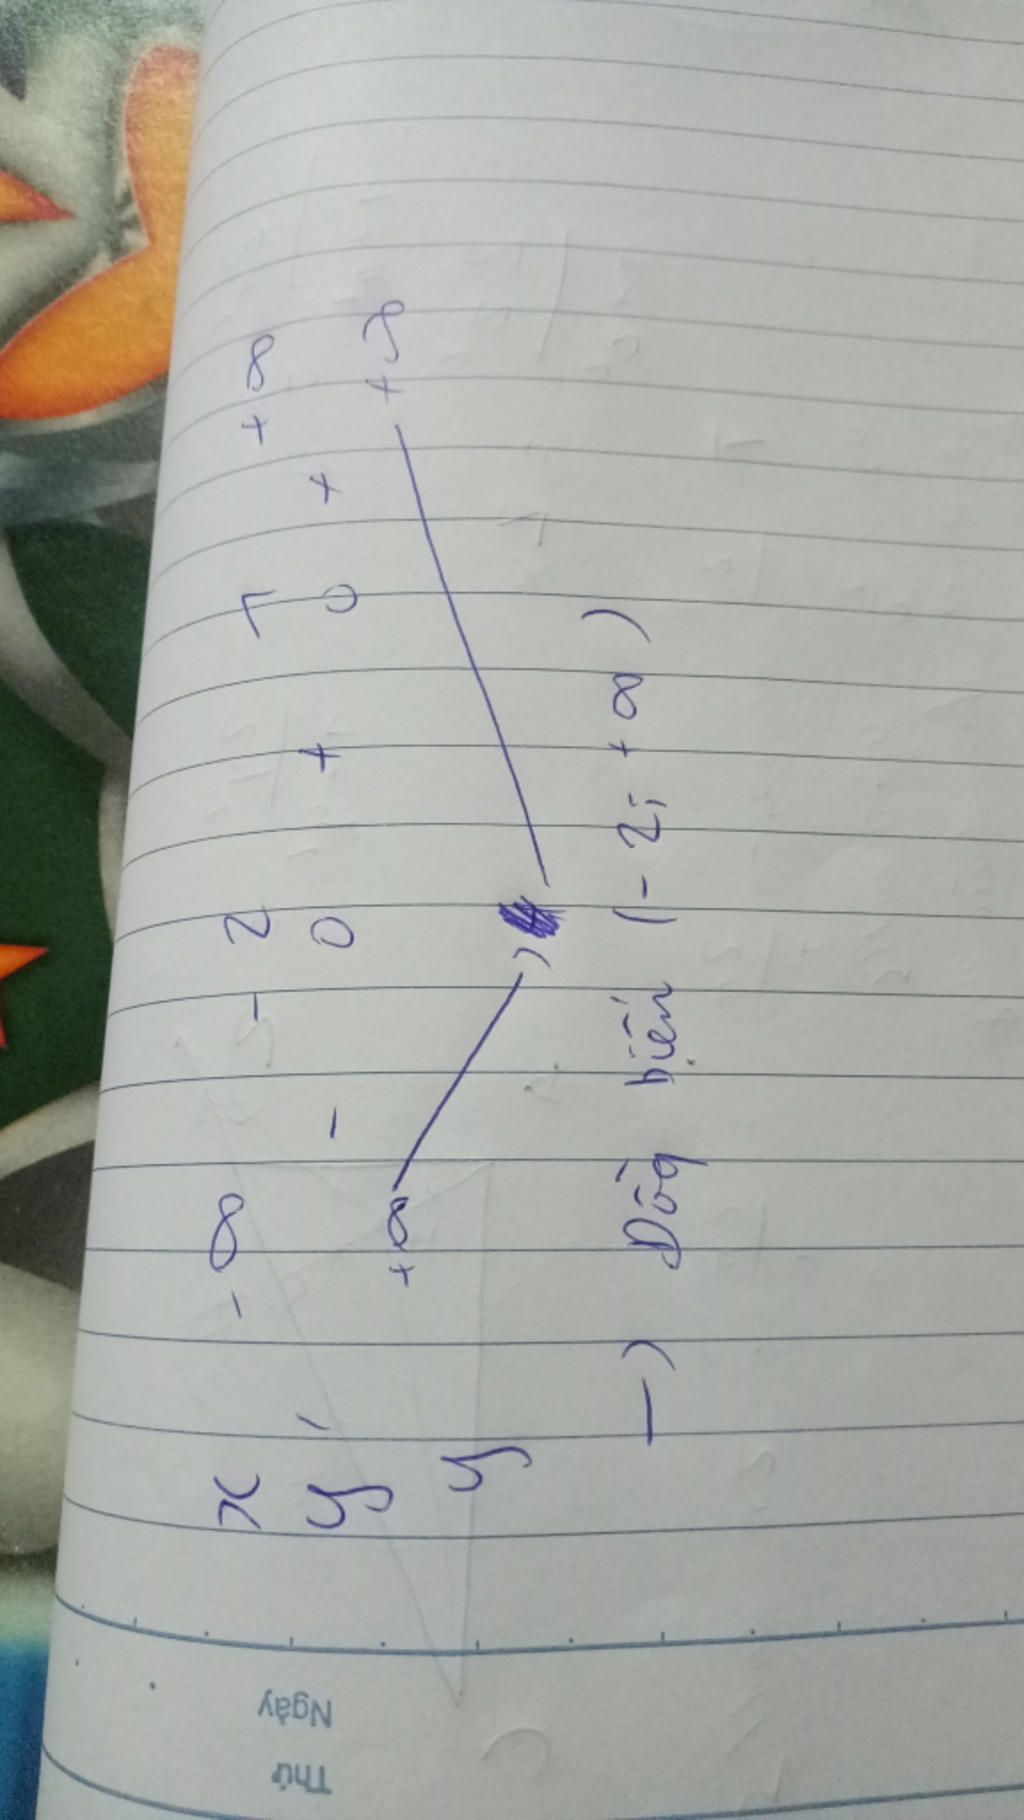 x -∞ -2 1 +∞
y' - 0 + 0 + 
+∞ +∞
y
→ Đồng biến (-2; +∞)
Thứ
Ngày